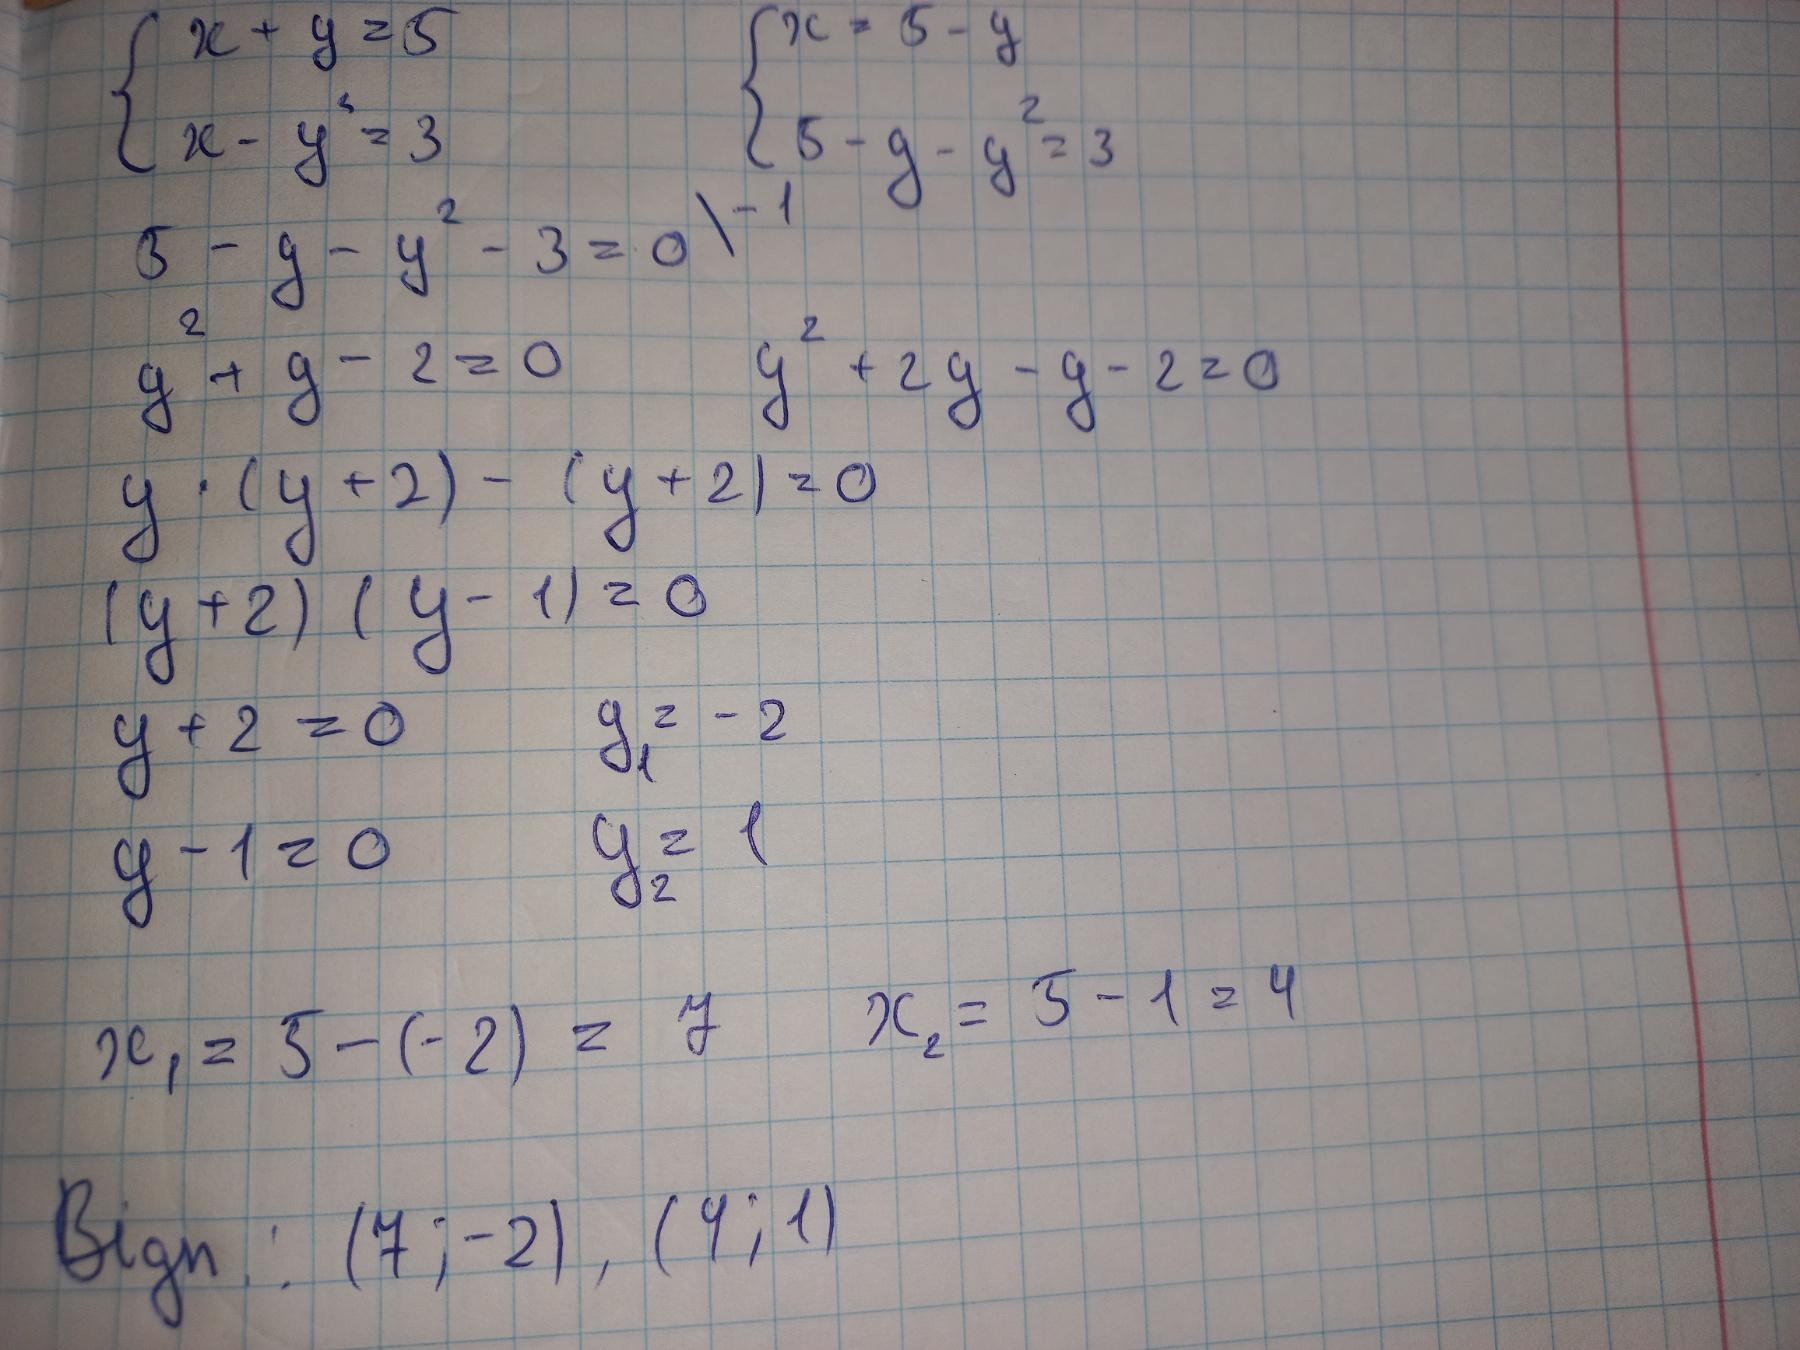 { x + y = 5 { x = 5 - y
x - y² = 3 5 - y - y² = 3
5 - y - y² - 3 = 0 \ -1
y² + y - 2 = 0 y² + 2y - y - 2 = 0
y · (y + 2) - (y + 2) = 0
(y + 2) (y - 1) = 0
y + 2 = 0 y₁ = - 2
y - 1 = 0 y₂ = 1
x₁ = 5 - (- 2) = 7 x₂ = 5 - 1 = 4
Відп : (7 ; -2) , (4 ; 1)